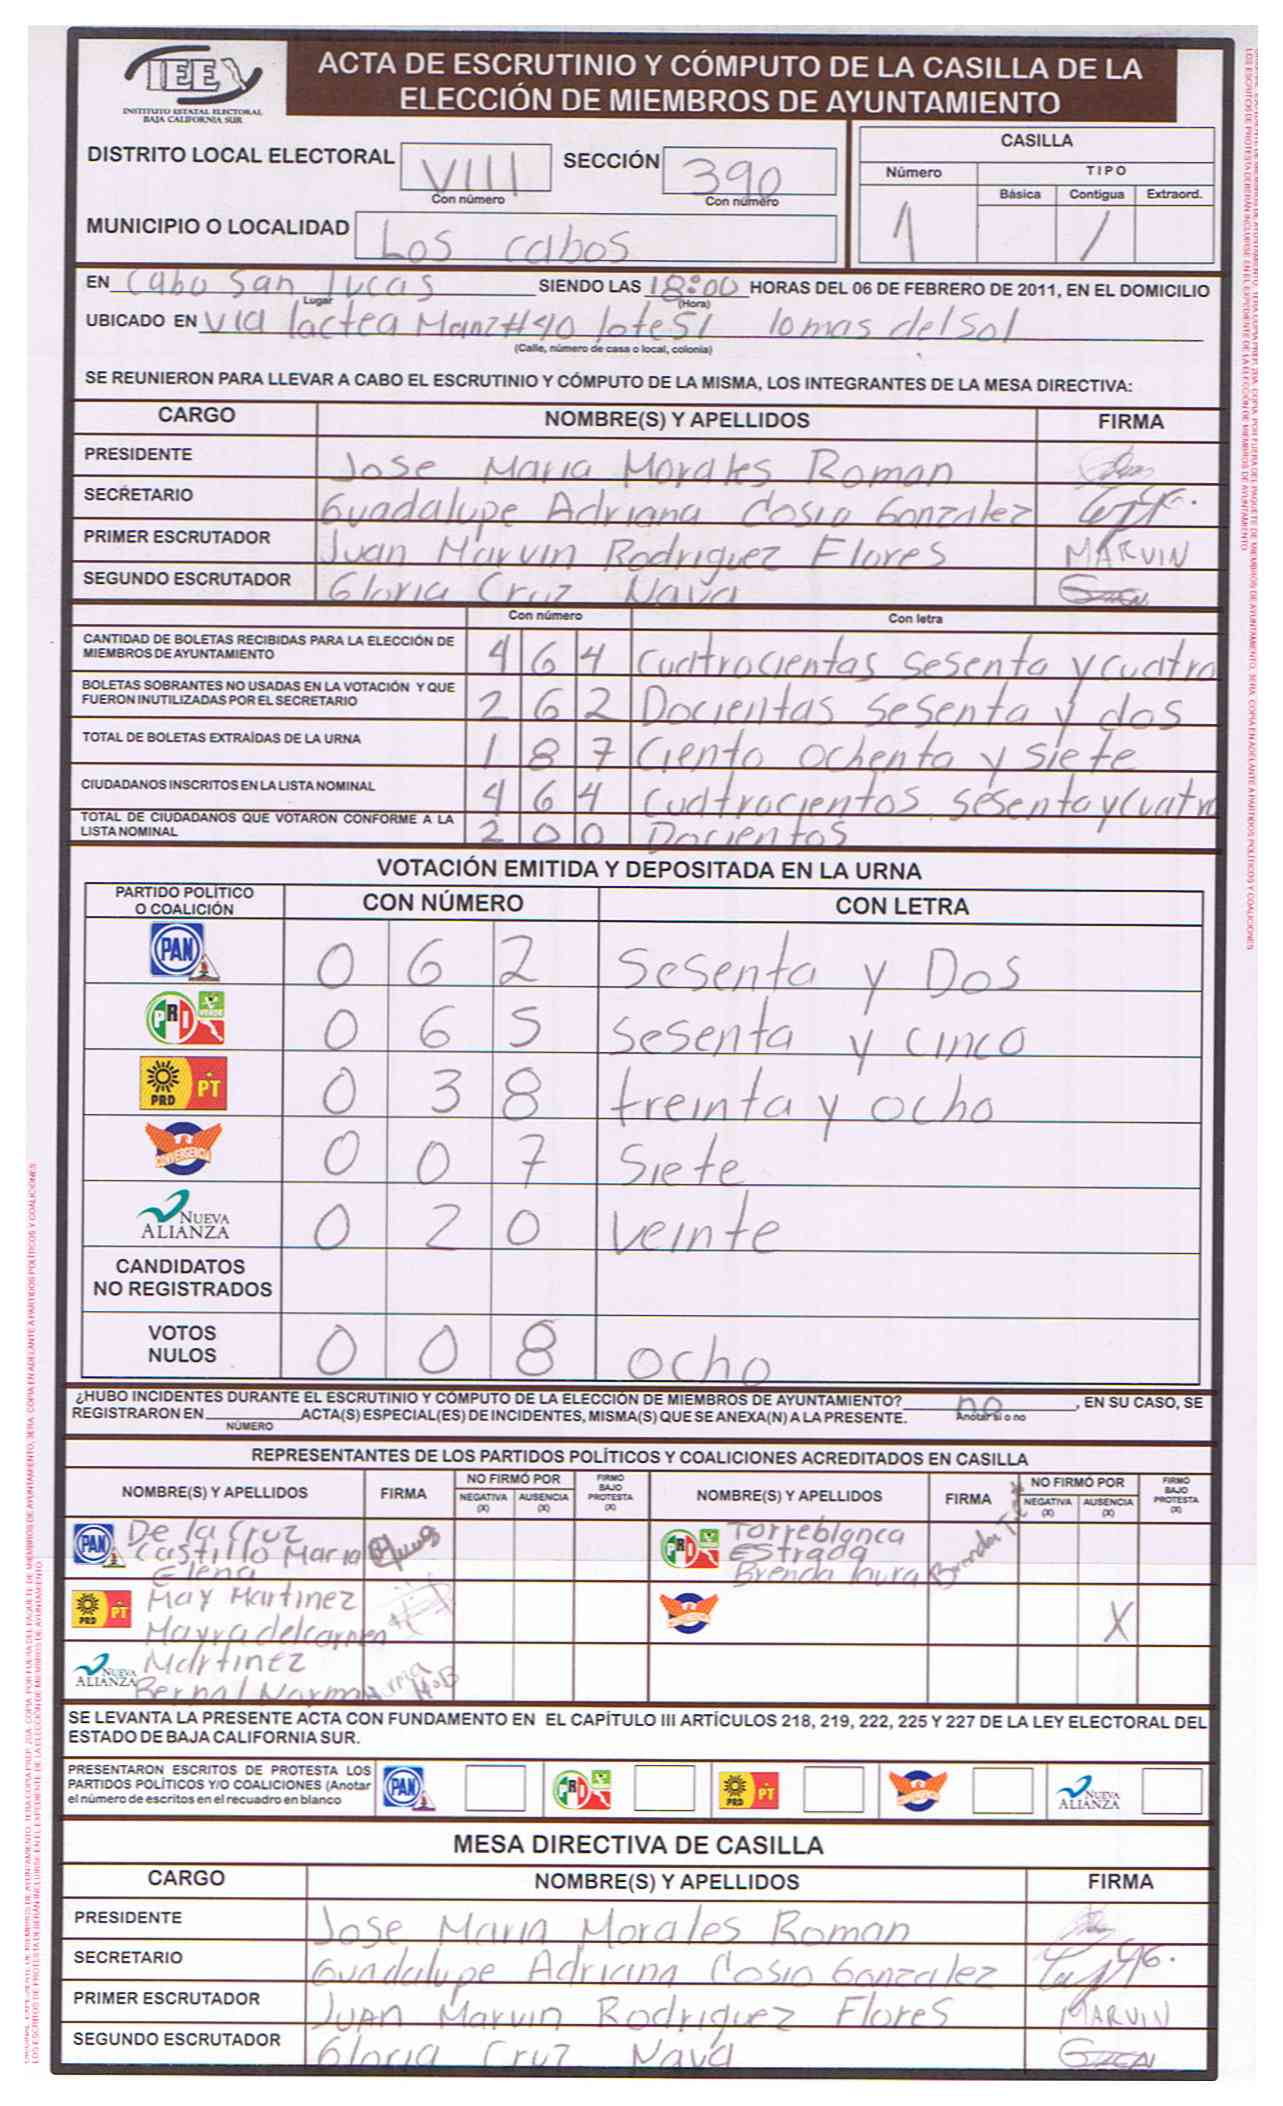 IEE
INSTITUTO ESTATAL ELECTORAL
BAJA CALIFORNIA SUR
ACTA DE ESCRUTINIO Y CÓMPUTO DE LA CASILLA DE LA
ELECCIÓN DE MIEMBROS DE AYUNTAMIENTO
DISTRITO LOCAL ELECTORAL VIII SECCIÓN 390
Con número Con número
MUNICIPIO O LOCALIDAD Los cabos
CASILLA
Número TIPO
Básica Contigua Extraord.
1 /
EN Cabo San Lucas SIENDO LAS 18:00 HORAS DEL 06 DE FEBRERO DE 2011, EN EL DOMICILIO
Lugar (Hora)
UBICADO EN Via lactea Manz#40 lote51 lomas del Sol
(Calle, número de casa o local, colonia)
SE REUNIERON PARA LLEVAR A CABO EL ESCRUTINIO Y CÓMPUTO DE LA MISMA, LOS INTEGRANTES DE LA MESA DIRECTIVA:
CARGO NOMBRE(S) Y APELLIDOS FIRMA
PRESIDENTE Jose Maria Morales Roman
SECRETARIO Guadalupe Adriana Cosio Gonzalez
PRIMER ESCRUTADOR Juan Marvin Rodriguez Flores MARVIN
SEGUNDO ESCRUTADOR Gloria Cruz Nava
Con número Con letra
CANTIDAD DE BOLETAS RECIBIDAS PARA LA ELECCIÓN DE
MIEMBROS DE AYUNTAMIENTO 4 6 4 Cuatrocientas sesenta y cuatro
BOLETAS SOBRANTES NO USADAS EN LA VOTACIÓN Y QUE
FUERON INUTILIZADAS POR EL SECRETARIO 2 6 2 Docientas sesenta y dos
TOTAL DE BOLETAS EXTRAÍDAS DE LA URNA 1 8 7 Ciento ochenta y siete
CIUDADANOS INSCRITOS EN LA LISTA NOMINAL 4 6 4 Cuatrocientos sesenta y cuatro
TOTAL DE CIUDADANOS QUE VOTARON CONFORME A LA
LISTA NOMINAL 2 0 0 Docientos
VOTACIÓN EMITIDA Y DEPOSITADA EN LA URNA
PARTIDO POLÍTICO
O COALICIÓN CON NÚMERO CON LETRA
PAN 0 6 2 Sesenta y Dos
PRI VERDE 0 6 5 Sesenta y cinco
PRD PT 0 3 8 treinta y ocho
CONVERGENCIA 0 0 7 Siete
NUEVA ALIANZA 0 2 0 veinte
CANDIDATOS
NO REGISTRADOS
VOTOS
NULOS 0 0 8 ocho
¿HUBO INCIDENTES DURANTE EL ESCRUTINIO Y CÓMPUTO DE LA ELECCIÓN DE MIEMBROS DE AYUNTAMIENTO? no, EN SU CASO, SE
REGISTRARON EN ACTA(S) ESPECIAL(ES) DE INCIDENTES, MISMA(S) QUE SE ANEXA(N) A LA PRESENTE. Anotar si o no
NÚMERO
REPRESENTANTES DE LOS PARTIDOS POLÍTICOS Y COALICIONES ACREDITADOS EN CASILLA
NOMBRE(S) Y APELLIDOS FIRMA NO FIRMÓ POR NEGATIVA (X) AUSENCIA (X) FIRMÓ BAJO PROTESTA (X) NOMBRE(S) Y APELLIDOS FIRMA NO FIRMÓ POR NEGATIVA (X) AUSENCIA (X) FIRMÓ BAJO PROTESTA (X)
PAN De la Cruz
Castillo Maria
Elena
PRI Torreblanca
Estrada
Brenda laura
PRD PT May Martinez
Mayra del carmen
X
NUEVA ALIANZA Martinez
Bernal Norma
SE LEVANTA LA PRESENTE ACTA CON FUNDAMENTO EN EL CAPÍTULO III ARTÍCULOS 218, 219, 222, 225 Y 227 DE LA LEY ELECTORAL DEL
ESTADO DE BAJA CALIFORNIA SUR.
PRESENTARON ESCRITOS DE PROTESTA LOS
PARTIDOS POLÍTICOS Y/O COALICIONES (Anotar
el número de escritos en el recuadro en blanco
PAN PRI PRD PT NUEVA ALIANZA
MESA DIRECTIVA DE CASILLA
CARGO NOMBRE(S) Y APELLIDOS FIRMA
PRESIDENTE Jose Maria Morales Roman
SECRETARIO Guadalupe Adriana Cosio Gonzalez
PRIMER ESCRUTADOR Juan Marvin Rodriguez Flores MARVIN
SEGUNDO ESCRUTADOR Gloria Cruz Nava